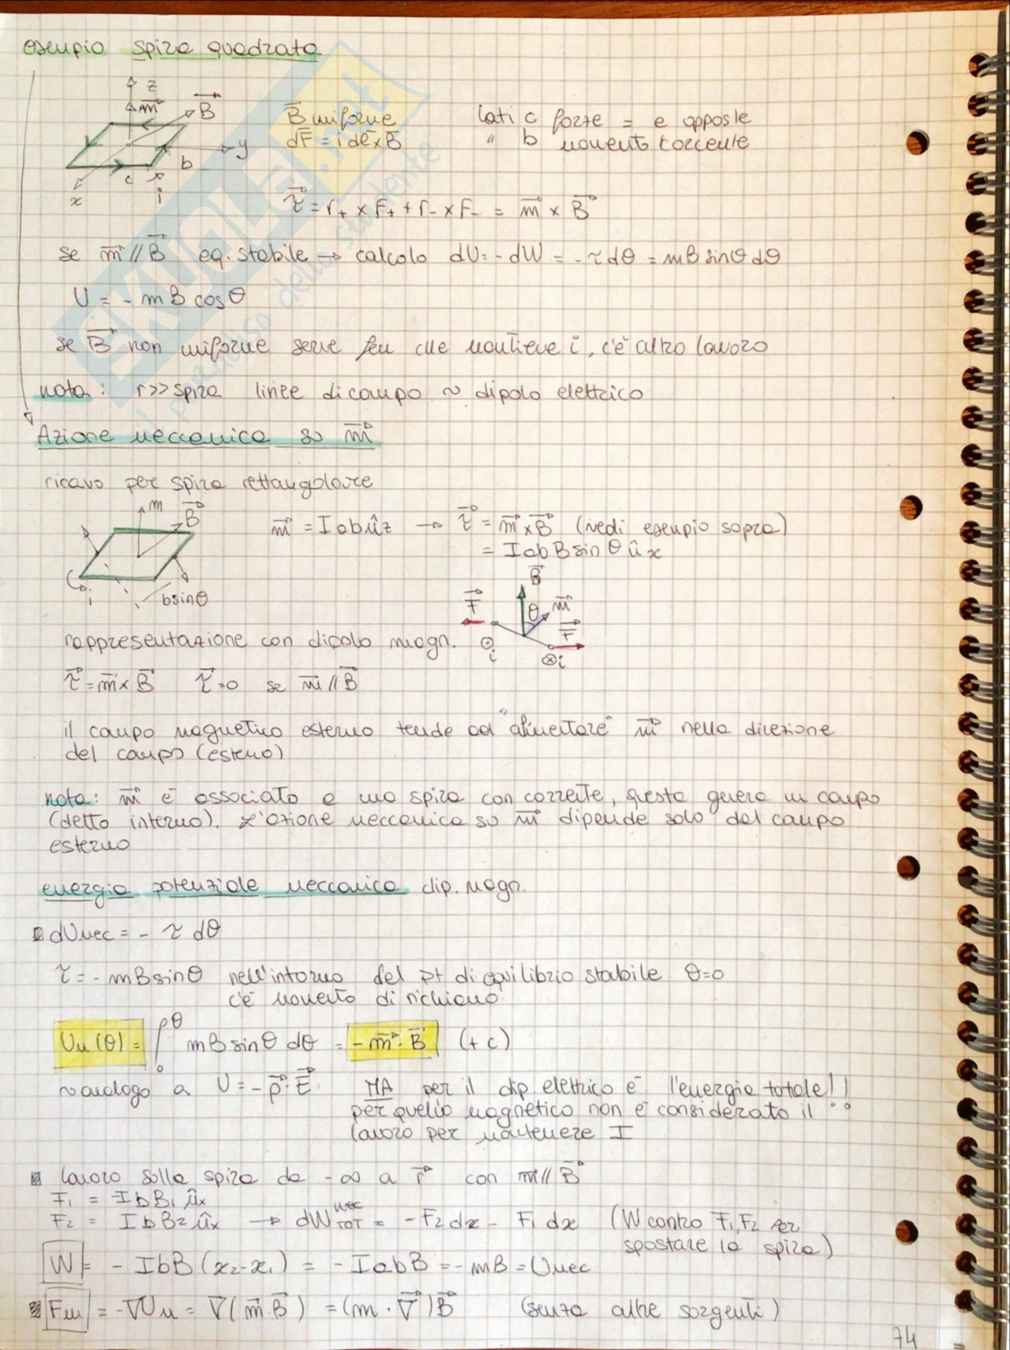 esempio spira quadrata
z
m⃗ B⃗
y
b
c
x i
B⃗ uniforme lati c forze = e opposte
dF⃗ = i dl⃗ x B⃗ " b momento torcente
τ⃗ = r₊ x F₊ + r₋ x F₋ = m⃗ x B⃗
se m⃗ // B⃗ eq. stabile → calcolo dU = - dW = - τ dθ = mB sinθ dθ
U = - mB cosθ
se B⃗ non uniforme serve fem che mantiene i, c'è altro lavoro
nota: r>>spira linee di campo ~ dipolo elettrico
Azione meccanica su m⃗
ricavo per spira rettangolare
m B⃗
i
b sinθ
m⃗ = Iab ûz → τ⃗ = m⃗ x B⃗ (vedi esempio sopra)
= Iab B sinθ ûx
B⃗
F⃗ θ m⃗
F⃗
⊙ i
⊗ i
rappresentazione con dipolo magn.
τ⃗ = m⃗ x B⃗ τ⃗ = 0 se m⃗ // B⃗
il campo magnetico esterno tende ad "alimentare" m⃗ nella direzione
del campo (esterno)
nota: m⃗ è associato a una spira con corrente, questa genera un campo
(detto interno). L'azione meccanica su m⃗ dipende solo dal campo
esterno
energia potenziale meccanica dip. magn.
dUmec = - τ dθ
τ = - mB sinθ nell'intorno del pt di equilibrio stabile θ=0
c'è momento di richiamo
Um(θ) = ∫₀^θ mB sinθ dθ = - m⃗ · B⃗ (+ c)
analogo a U = - p⃗ · E⃗ MA per il dip. elettrico è l'energia totale!!
per quello magnetico non è considerato il
lavoro per mantenere I
lavoro sulla spira da -∞ a r⃗ con m⃗ // B⃗
F₁ = IbB₁ ûx
F₂ = IbB₂ ûx → dW TOT mec = - F₂dx - F₁dx (W contro F₁, F₂ per
spostare la spira)
W = - IbB (x₂-x₁) = - IabB = - mB = Umec
Fm = -∇Um = ∇(m⃗ B⃗) = (m · ∇⃗)B⃗ (senza altre sorgenti)
74